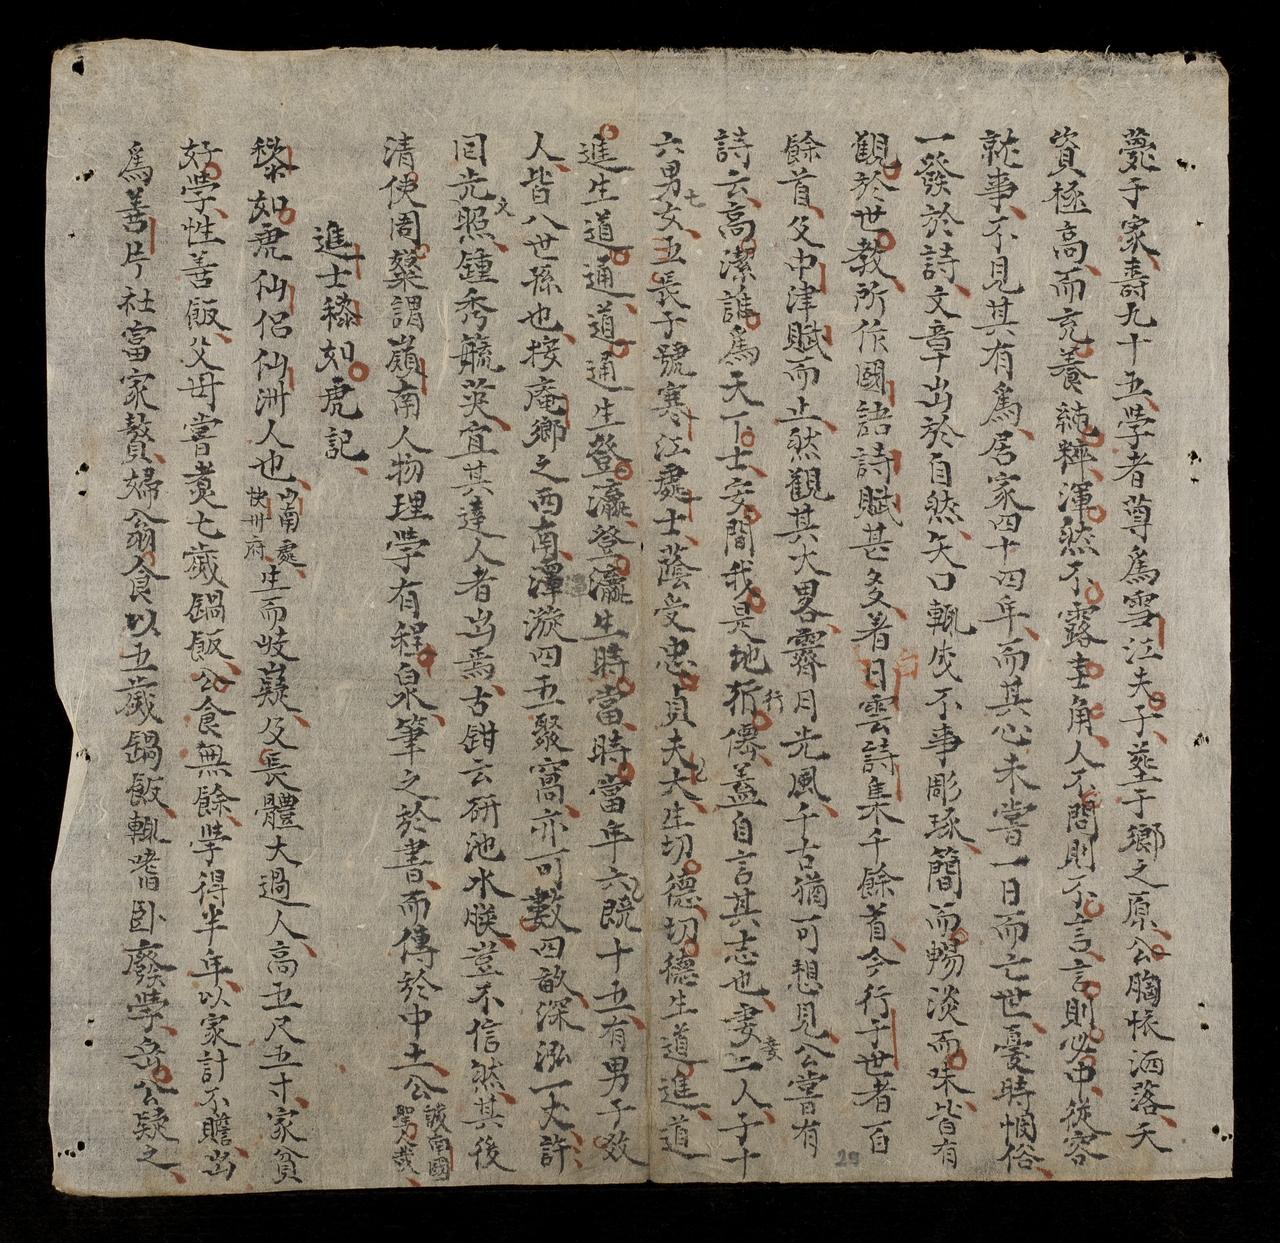 薨于家壽九十五學者尊爲雪江夫子塟于鄉之原公胸懷洒落天
資極高而充養純粹渾然不露圭角人不問則不言言則必中從容
就事不見其有爲居家四十四年而其心未嘗一日而亡世憂時憫俗
一發於詩文章出於自然矢口輒成不事彫琢簡而暢淡而味皆有
觀於世教所作國語詩賦甚多著曰白雲詩集千餘首今行于世者百
餘首及中津賦而止然觀其大畧霽月光風千古猶可想見公嘗有
詩云高潔誰爲天下士安閒我是地行僊蓋自言其志也妻妾二人子十
六男七女五長子號寒江處士蔭受忠貞大夫生切德切德生道進道
進生道通道通生登瀛登瀛生時當時當年六既十五有男子效
人皆八世孫也按庵鄉之西南潭漩四五聚窩亦可數四畝深泓一丈許
囘光照文鍾秀毓英宜其達人者出焉古鉗云研池水朕豈不信然其後
清使周粲謂嶺南人物理學有程泉筆之於書而傳於中土公誠南國聖人哉
進士穇如虎記
穇如虎仙侣仙洲人也山南處快州府生而岐嶷及長體大過人高五尺五寸家貧
好學性善飯父母嘗煮七歲鍋飯公食無餘學得半年以家計不贍出
爲善片社富家贅婦翁食以五歲鍋飯輒嗜臥廢學岳公疑之
29